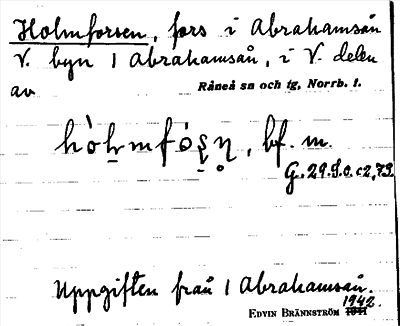 Holmforsen, fors i Abrahamsån
V. byn 1 Abrahamså, i V. delen
av
Råneå sn och tg, Norrb. l.
hòḥmfó̤ṣṇ, bf. m.
G. 29.S.o.c2,73.
Uppgiften från 1 Abrahamsån.
1942.
EDVIN BRÄNNSTRÖM 1941